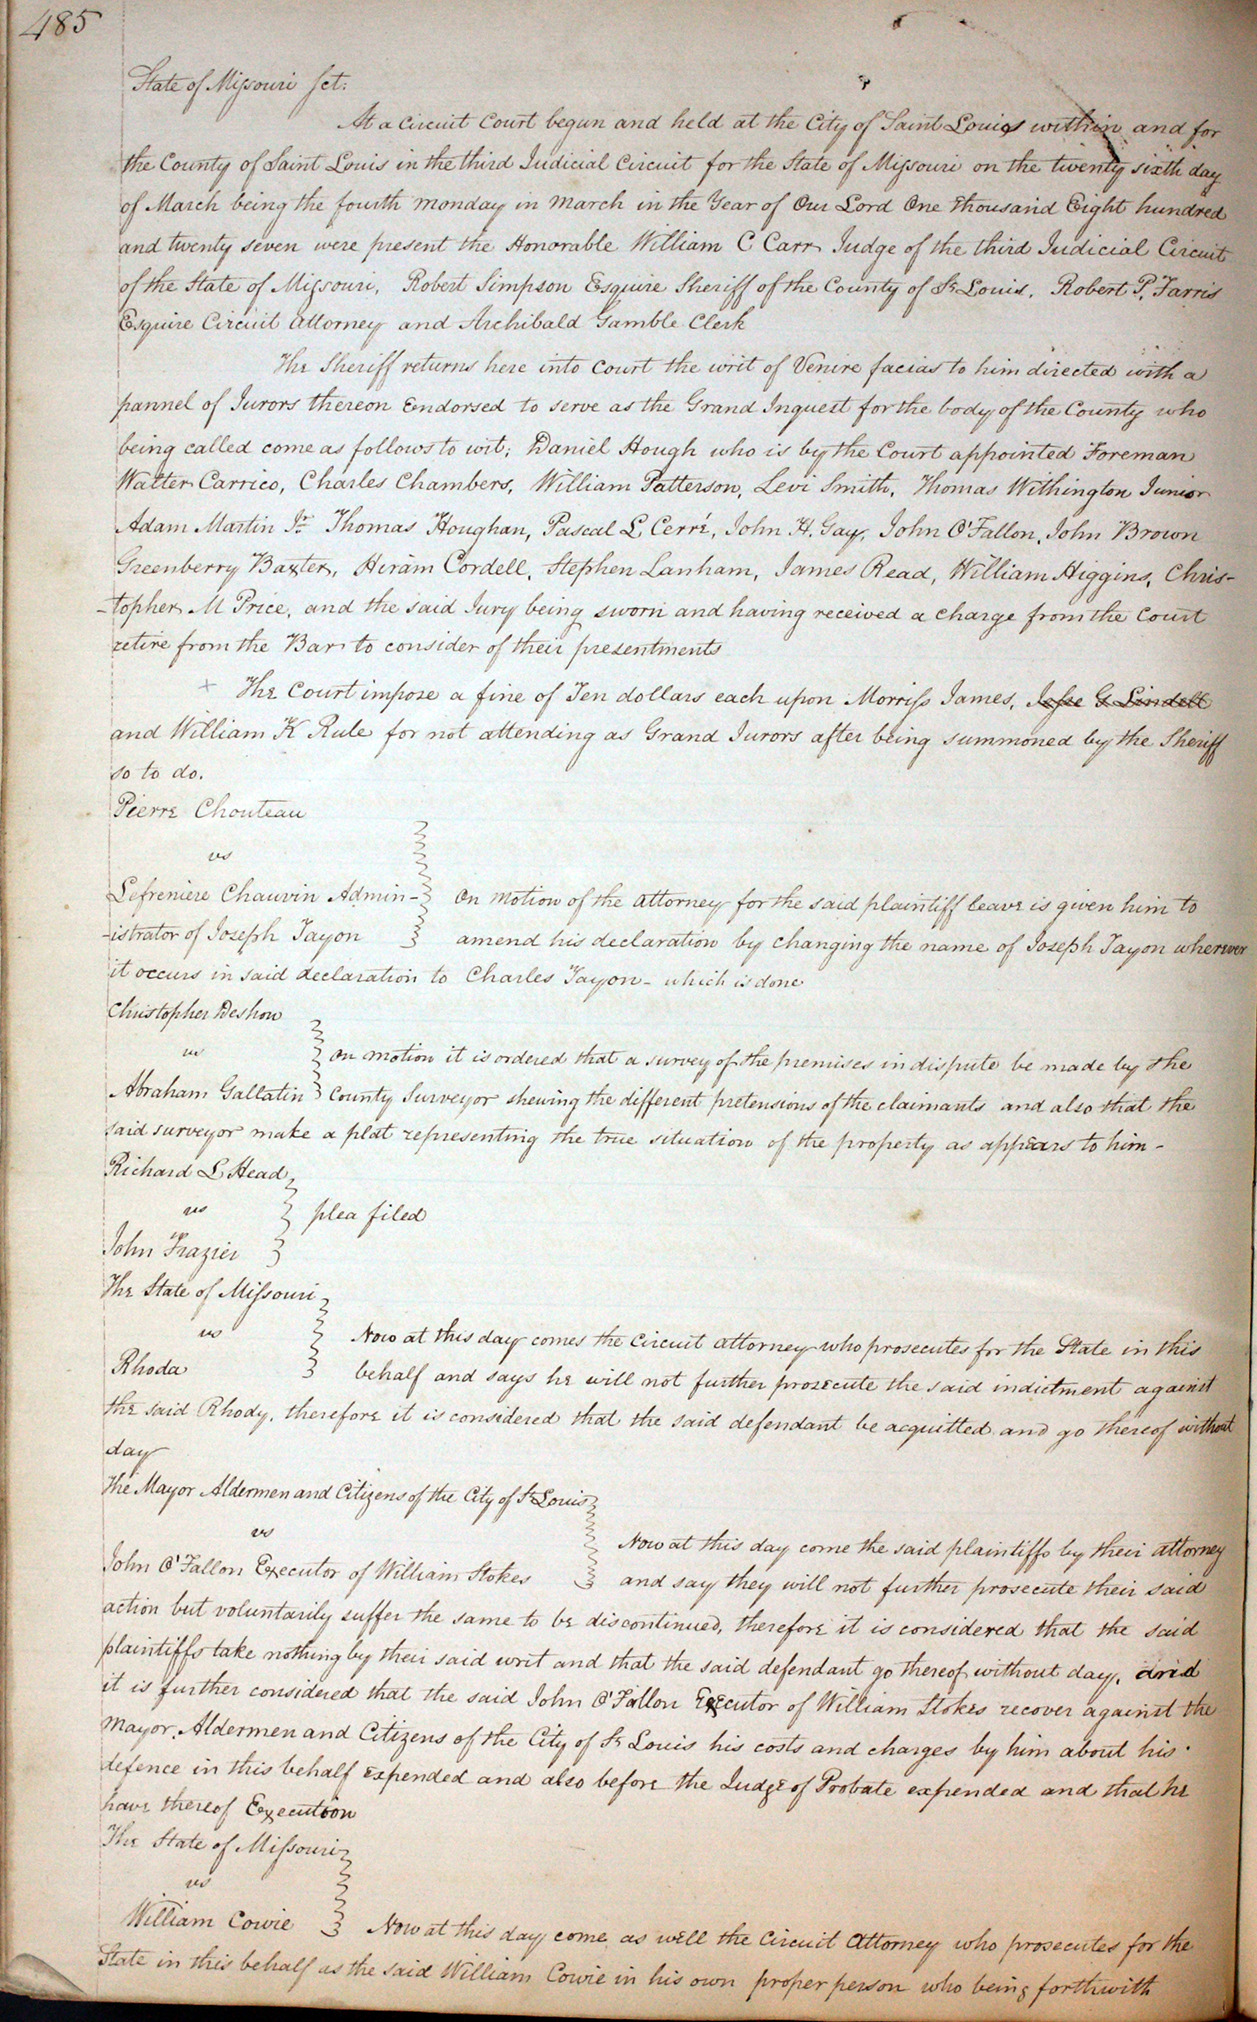 485
State of Missouri Sct.
At a Circuit Court begun and held at the City of Saint Louis within and for
the County of Saint Louis in the third Judicial Circuit for the State of Missouri on the twenty sixth day
of March being the fourth monday in march in the Year of Our Lord One thousand Eight hundred
and twenty seven were present the Honorable William C Carr Judge of the third Judicial Circuit
of the State of Missouri, Robert Simpson Esquire Sheriff of the County of St Louis, Robert P. Farris
Esquire Circuit attorney and Archibald Gamble Clerk
The Sheriff returns here into Court the writ of Venire facias to him directed with a
pannel of Jurors thereon Endorsed to serve as the Grand Inquest for the body of the County who
being called come as follows to wit; Daniel Hough who is by the Court appointed Foreman
Walter Carrico, Charles Chambers, William Patterson, Levi Smith, Thomas Withington Junior
Adam Martin Jr Thomas Houghan, Pascal L Cerré, John H. Gay, John O'Fallon, John Brown
Greenberry Baxter, Hiram Cordell, Stephen Lanham, James Read, William Higgins, Chris-
-topher M Price, and the said Jury being sworn and having received a charge from the Court
retire from the Bar to consider of their presentments
+ The Court impose a fine of Ten dollars each upon Morriss James, Jesse G Lindell
and William K Rule for not attending as Grand Jurors after being summoned by the Sheriff
so to do.
Pierre Chouteau
vs
Lefreniere Chauvin Admin- On motion of the attorney for the said plaintiff leave is given him to
-istrator of Joseph Tayon amend his declaration by changing the name of Joseph Tayon wherever
it occurs in said declaration to Charles Tayon - which is done
Christopher Deshon
vs On motion it is ordered that a survey of the premises in dispute be made by the
Abraham Gallatin County Surveyor shewing the different pretensions of the claimants and also that the
said surveyor make a plat representing the true situation of the property as appears to him -
Richard L Head
vs plea filed
John Frazier
The State of Missouri
vs Now at this day comes the Circuit attorney who prosecutes for the State in this
Rhoda behalf and says he will not further prosecute the said indictment against
the said Rhody, therefore it is considered that the said defendant be acquitted and go thereof without
day
The Mayor Aldermen and Citizens of the City of St Louis
vs Now at this day come the said plaintiffs by their attorney
John O'Fallon Executor of William Stokes and say they will not further prosecute their said
action but voluntarily suffer the same to be discontinued, therefore it is considered that the said
plaintiffs take nothing by their said writ and that the said defendant go thereof without day, and
it is further considered that the said John O'Fallon Executor of William Stokes recover against the
Mayor, Aldermen and Citizens of the City of St Louis his costs and charges by him about his
defence in this behalf expended and also before the Judge of Probate expended and that he
have thereof Execution
The State of Missouri
vs
William Cowie Now at this day come as well the Circuit Attorney who prosecutes for the
State in this behalf as the said William Cowie in his own proper person who being forthwith